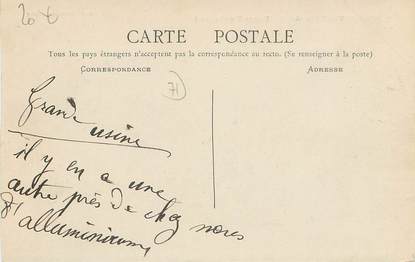 20 €
CARTE POSTALE
Tous les pays étrangers n'acceptent pas la correspondance au recto. (Se renseigner à la poste)
CORRESPONDANCE
ADRESSE
71
Grande usine
il y en a une
autre près de chez nous
d'alluminium